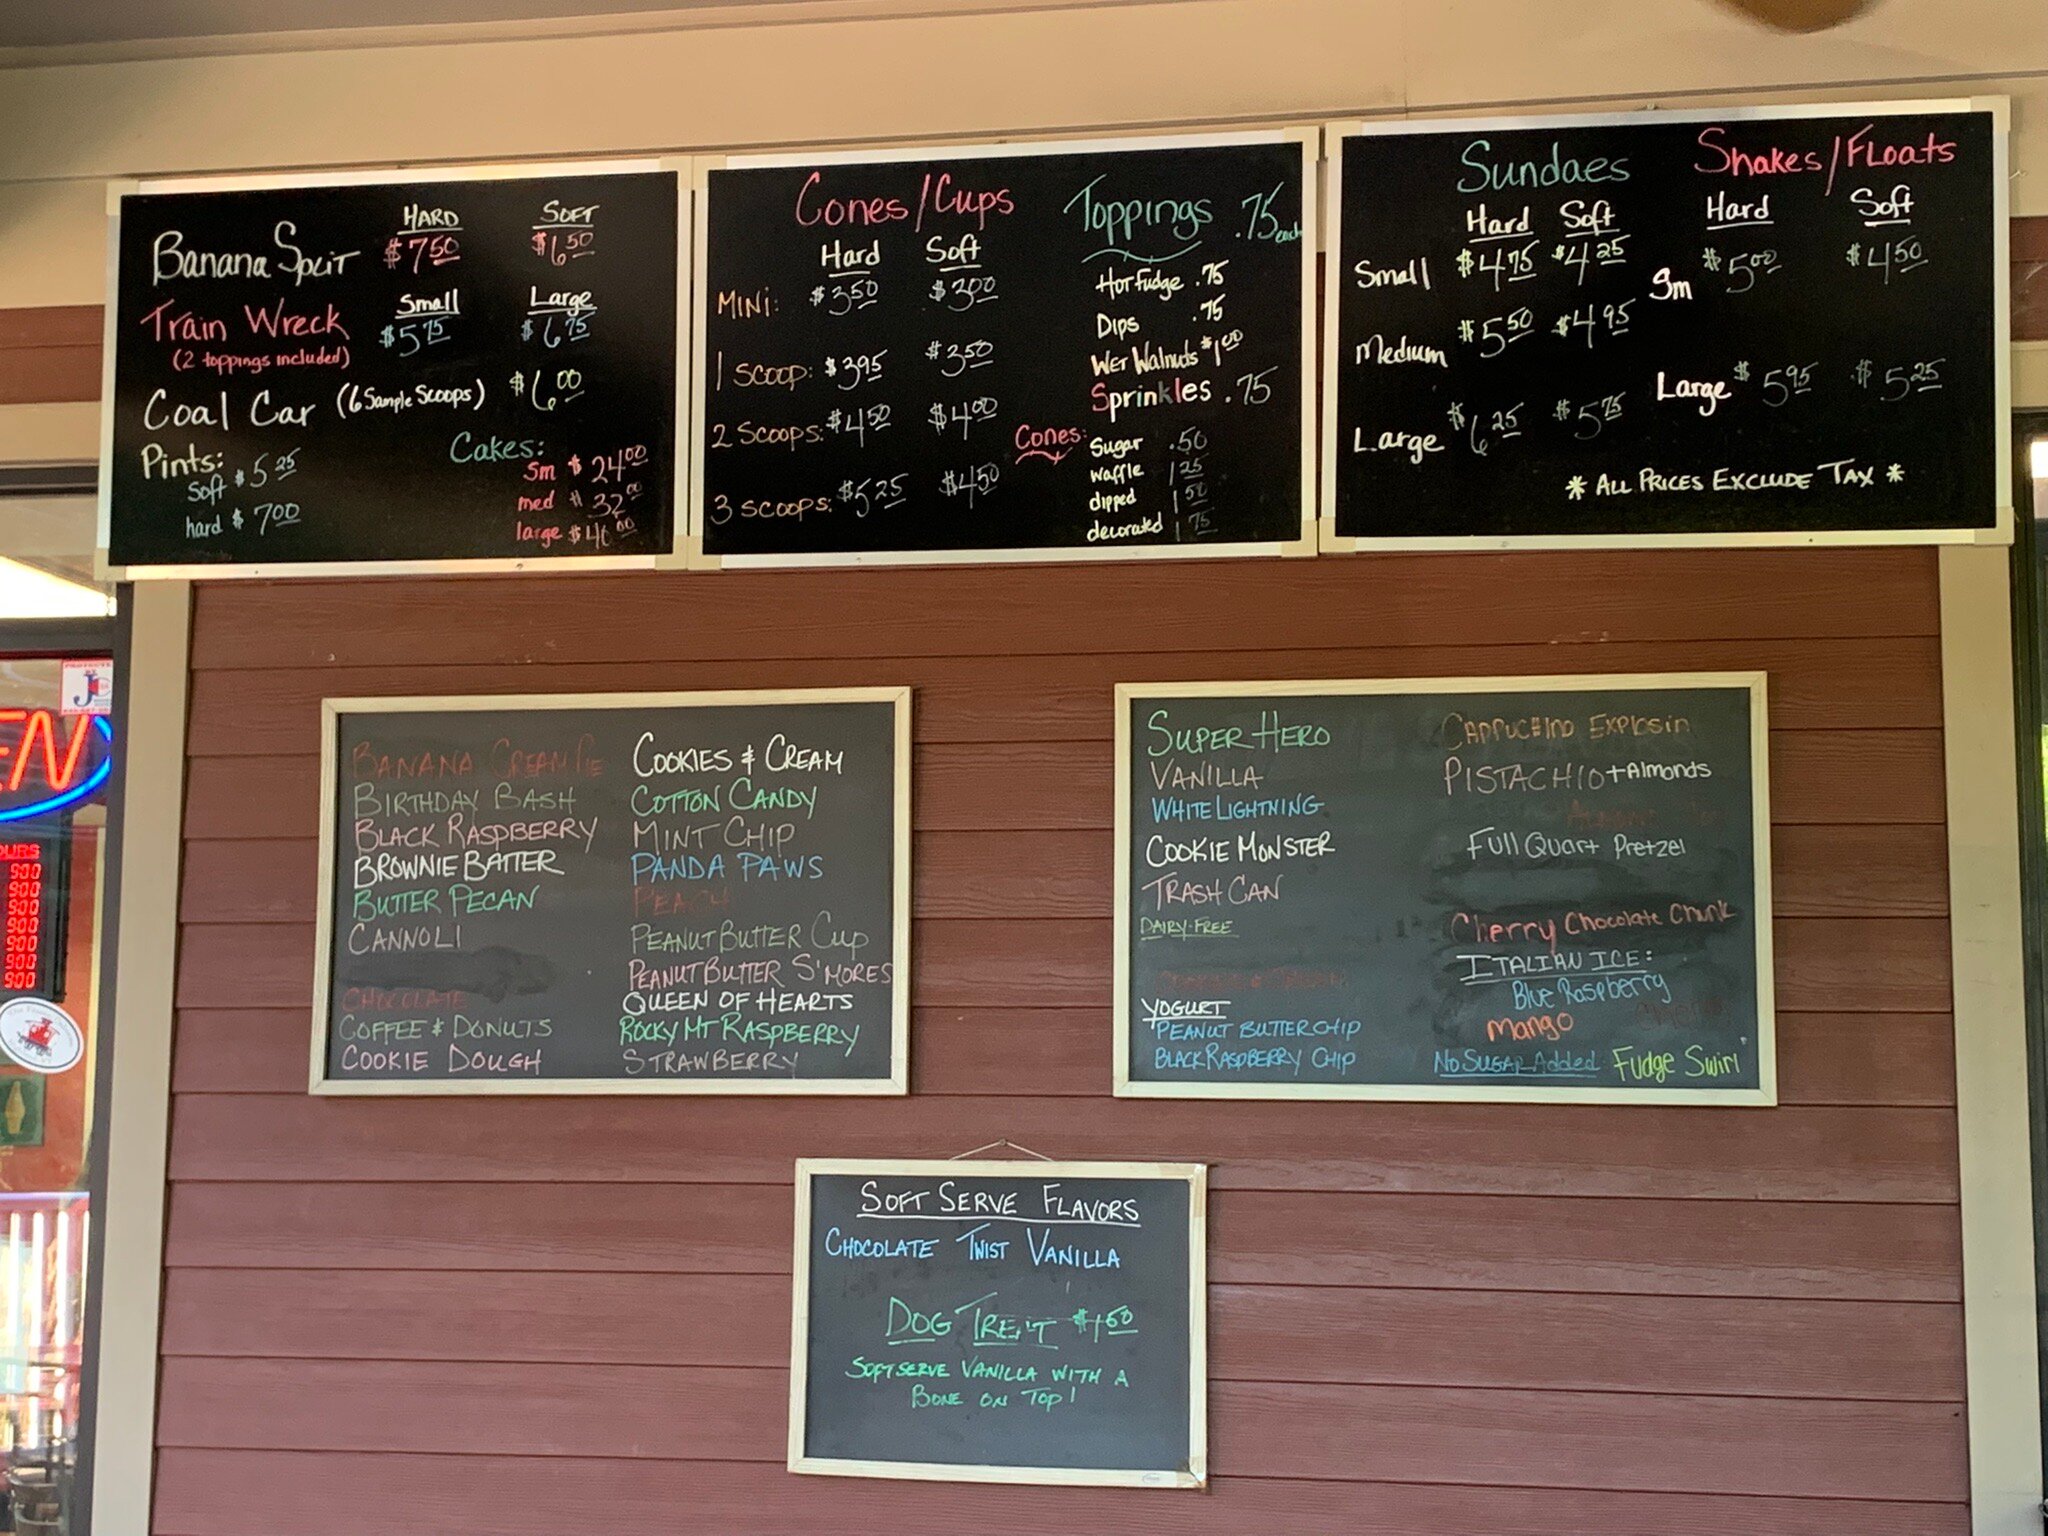 HARD SOFT
Banana Split $7.50 $6.50
Small Large
Train Wreck $5.75 $6.75
(2 toppings included)
Coal Car (6 Sample Scoops) $6.00
Pints:
soft $5.25
hard $7.00
Cakes:
sm $24.00
med $32.00
large $40.00
Cones/Cups
Hard Soft
MINI: $3.50 $3.00
1 SCOOP: $3.95 $3.50
2 SCOOPS: $4.50 $4.00
3 SCOOPS: $5.25 $4.50
Toppings .75 each
Hot Fudge .75
Dips .75
Wet Walnuts $1.00
Sprinkles .75
Cones:
Sugar .50
waffle 1.25
dipped 1.50
decorated 1.75
Sundaes
Hard Soft
Small $4.75 $4.25
Medium $5.50 $4.95
Large $6.25 $5.75
Shakes/Floats
Hard Soft
Sm $5.00 $4.50
Large $5.95 $5.25
* ALL PRICES EXCLUDE TAX *
BANANA CREAM PIE
BIRTHDAY BASH
BLACK RASPBERRY
BROWNIE BATTER
BUTTER PECAN
CANNOLI
CHOCOLATE
COFFEE & DONUTS
COOKIE DOUGH
COOKIES & CREAM
COTTON CANDY
MINT CHIP
PANDA PAWS
PEACH
PEANUT BUTTER CUP
PEANUT BUTTER S'MORES
QUEEN OF HEARTS
ROCKY MT RASPBERRY
STRAWBERRY
SUPER HERO
VANILLA
WHITE LIGHTNING
COOKIE MONSTER
TRASH CAN
DAIRY-FREE
YOGURT
PEANUT BUTTER CHIP
BLACK RASPBERRY CHIP
CAPPUCHINO EXPLOSIN
PISTACHIO + Almonds
Full Quart Pretzel
Cherry Chocolate Chunk
ITALIAN ICE:
Blue Raspberry
Mango
No SUGAR Added Fudge Swirl
SOFT SERVE FLAVORS
CHOCOLATE TWIST VANILLA
DOG TREAT $1.50
SOFTSERVE VANILLA WITH A
BONE ON TOP!
EN
OURS
900
900
900
900
900
900
900